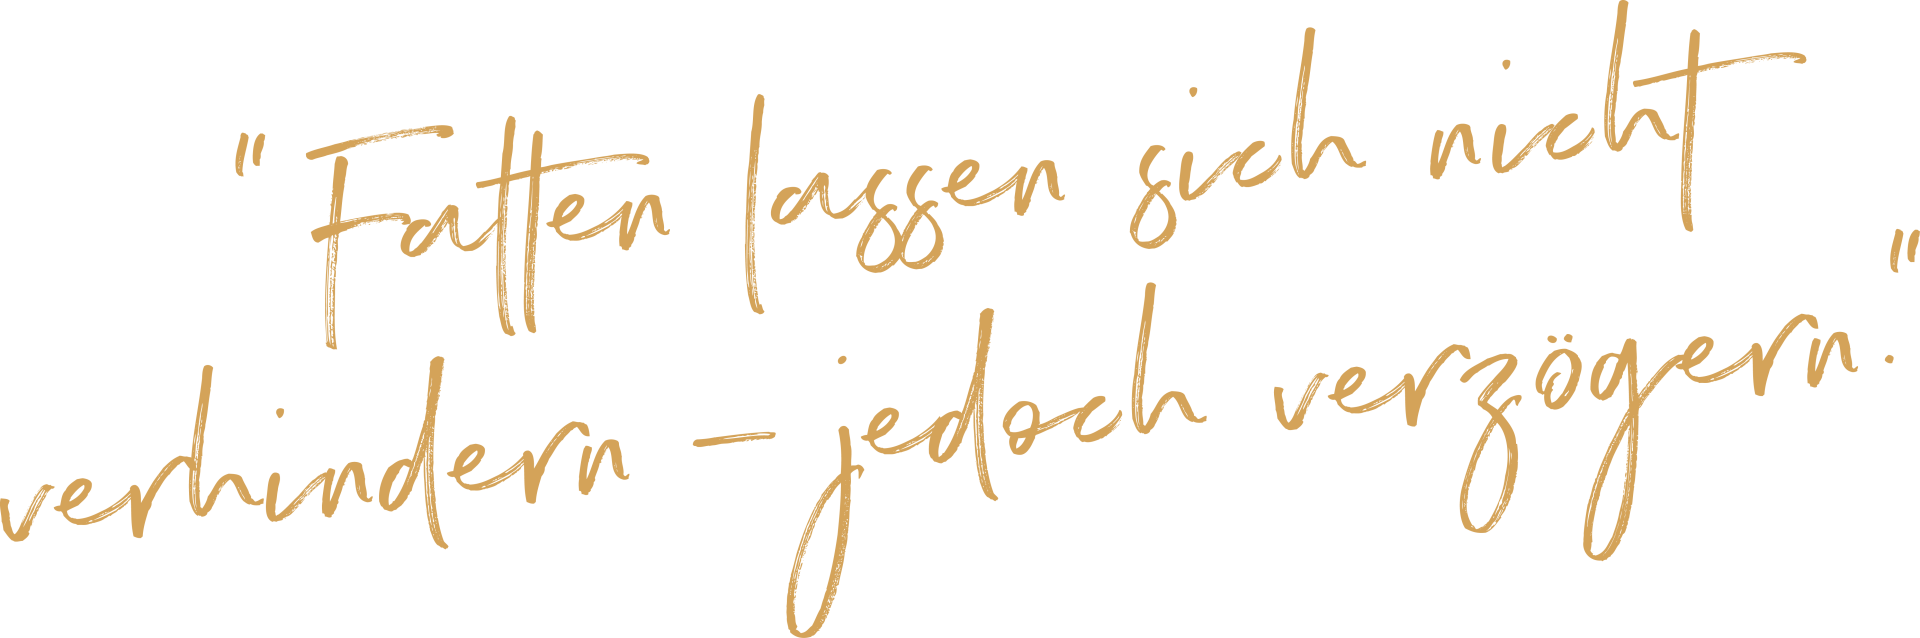 "Falten lassen sich nicht
verhindern – jedoch verzögern."